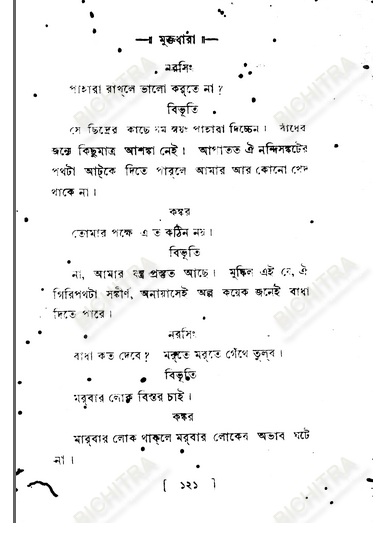 মুক্তধারা
নরসিং
পাহারা রাখ্‌লে ভালো কর্‌তে না ?
বিভূতি
সে ছিদ্রের কাছে যম স্বয়ং পাহারা দিচ্চেন। বাঁধের
জন্যে কিছুমাত্র আশঙ্কা নেই। আপাতত ঐ নন্দিসঙ্কটের
পথটা আট্‌কে দিতে পার্‌লে আমার আর কোনো খেদ
থাকে না।
কঙ্কর
তোমার পক্ষে এ ত কঠিন নয়।
বিভূতি
না, আমার যন্ত্র প্রস্তুত আছে। মুস্কিল এই যে, ঐ
গিরিপথটা সঙ্কীর্ণ, অনায়াসেই অল্প কয়েক জনেই বাধা
দিতে পারে।
নরসিং
বাধা কত দেবে ? মর্‌তে মর্‌তে গেঁথে তুল্‌ব।
বিভূতি
মর্‌বার লোক বিস্তর চাই।
কঙ্কর
মার্‌বার লোক থাক্‌লে মর্‌বার লোকের অভাব ঘটে
না।
[ ১২১ ]
BICHITRA
BICHITRA
BICHITRA
BICHITRA
BICHITRA
BICHITRA